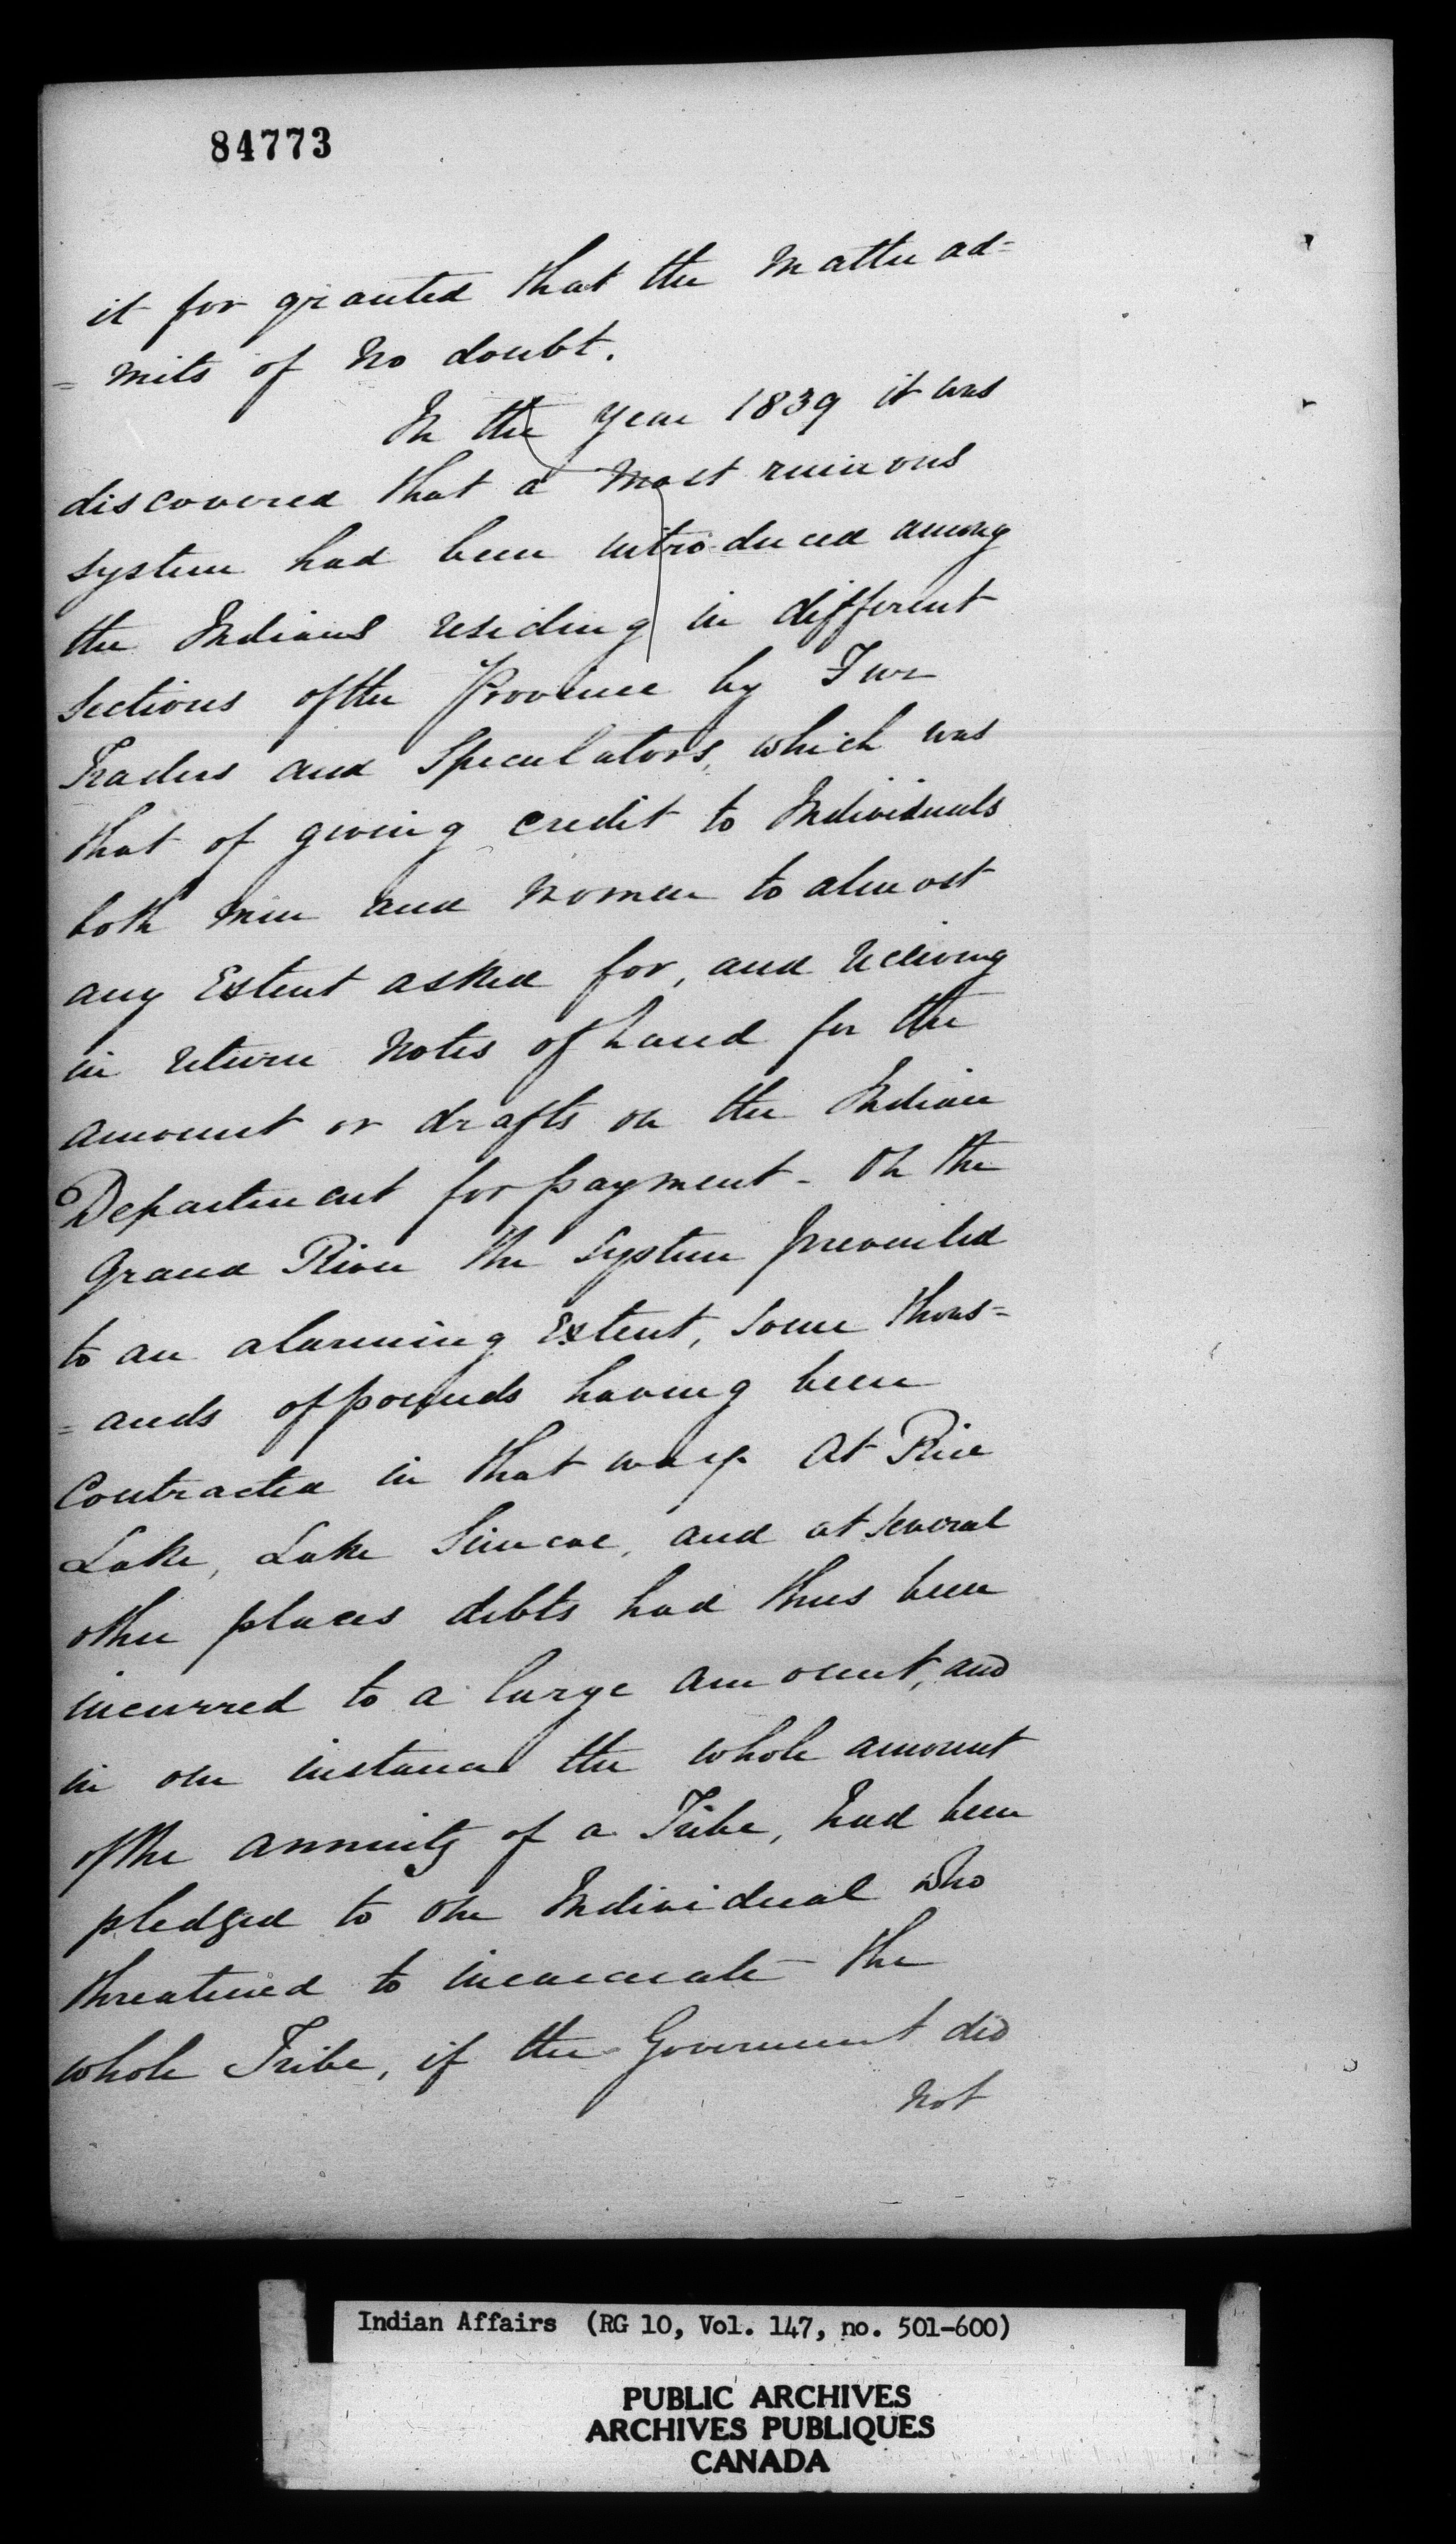 84773
it for granted that the matter ad=
=mits of no doubt.
In the year 1839 it was
discovered that a most ruinous
system had been introduced among
the Indians residing in different
Sections of the Province by Fur
Traders and Speculators, which was
that of giving credit to Individuals
both men and women to almost
any Extent asked for, and receiving
in return notes of hand for the
amount or drafts on the Indian
Department for payment - On the
Grand River the System prevailed
to an alarming Extent, some thous=
=ands of pounds having been
Contracted in that way. At Rice
Lake, Lake Simcoe, and at several
other places debts had thus been
incurred to a large amount, and
in one instance the whole amount
of the annuity of a Tribe, had been
pledged to one Individual who
threatened to incarcerate the
whole Tribe, if the Government did
not
Indian Affairs (RG 10, Vol. 147, no. 501-600)
PUBLIC ARCHIVES
ARCHIVES PUBLIQUES
CANADA